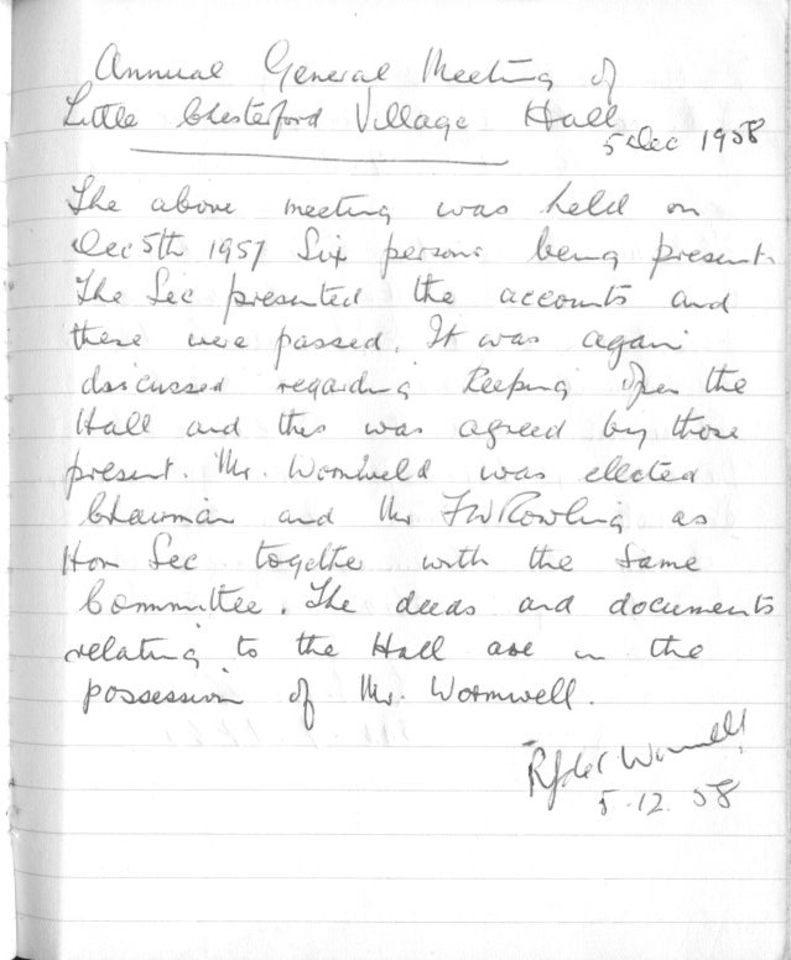 Annual General Meeting of
Little Chesterford Village Hall
5 Dec 1958
The above meeting was held on
Dec 5th 1957 Six persons being present.
The Sec presented the accounts and
these were passed. It was again
discussed regarding keeping open the
Hall and this was agreed by those
present. Mr. Wormweld was ellected
Chairman and Mr FW Rowling as
Hon Sec togethe with the same
Committee. The deeds and documents
relating to the Hall are in the
possession of Mr. Wormwell.
Wormwell
5.12.58